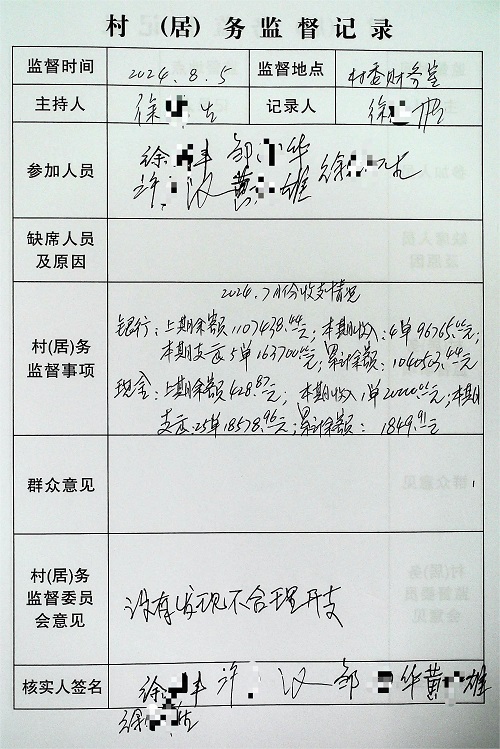 村(居)务监督记录
监督时间 2024.8.5 监督地点 村委财务室
主持人 徐 记录人 徐
参加人员 徐 丰 邹 华 徐
许 汉 黄 雄
缺席人员
及原因
2024.7月份收支情况
银行:上期余额1107438.44元;本期收入:4单96765.00元;
本期支出5单163700.00元;累计余额:1040503.44元
村(居)务
监督事项
现金:上期余额428.87元;本期收入1单20000.00元;本期
支出:25单18578.96元;累计余额:1849.91元
群众意见
村(居)务
监督委员
会意见
没有发现不合理开支
核实人签名 徐 丰 许 汉 邹 华 黄 雄
徐